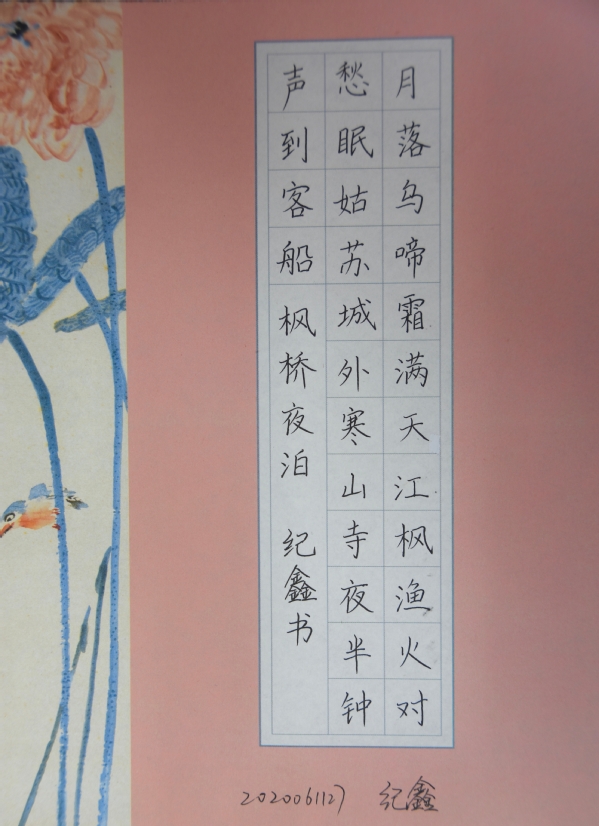 月落乌啼霜满天江枫渔火对
愁眠姑苏城外寒山寺夜半钟
声到客船 枫桥夜泊 纪鑫书
2020061127 纪鑫